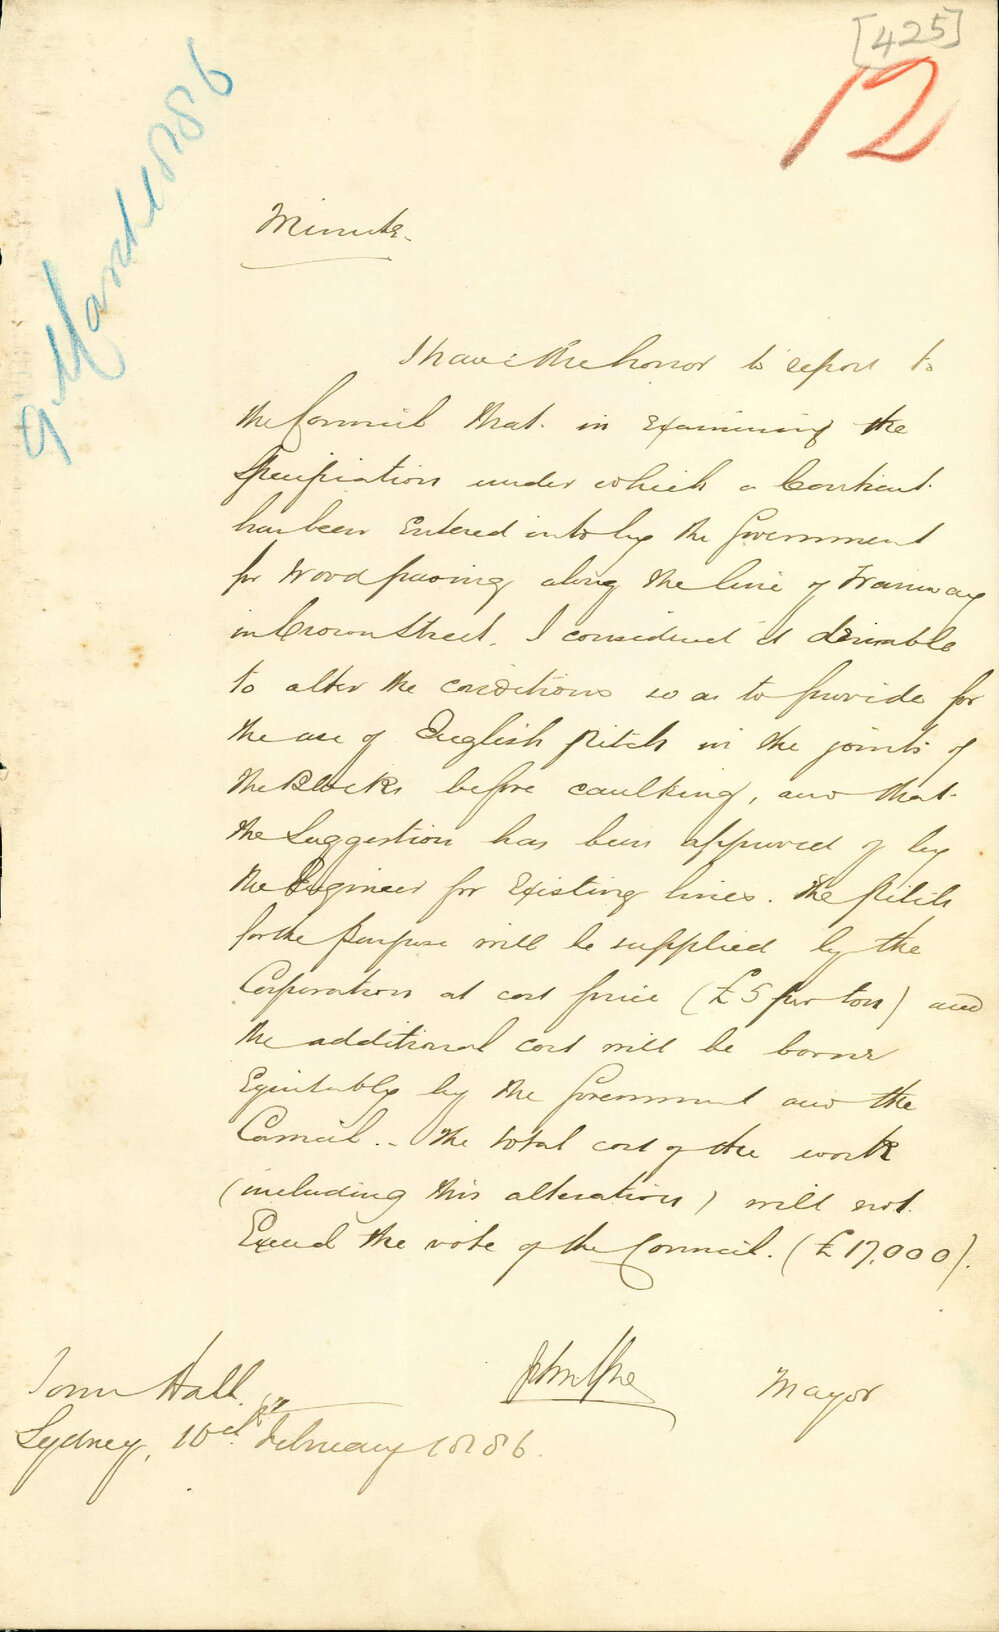 [425]
12
9 March 1886
Minute.
I have the honor to report to
the Council that in Examining the
Specification under which a Contract
has been Entered into by the Government
for Wood paving along the line of Tramway
in Crown Street, I considered it desirable
to alter the conditions so as to provide for
the use of English Pitch in the joints of
the Blocks before caulking, and that
the Suggestion has been approved of by
the Engineer for Existing lines. The Pitch
for the purpose will be supplied by the
Corporation at cost price (£5 per ton) and
the additional cost will be borne
Equitably by the Government and the
Council.. The total cost of the work
(including this alteration) will not
Exceed the vote of the Council. (£17,000).
Town Hall.
Mayor
Sydney, 10th February 1886.